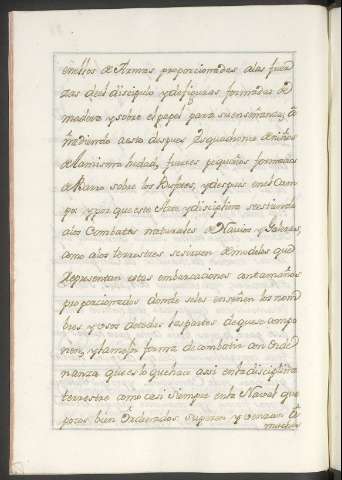 en ellos de Armas proporcionadas alas fuer
zas del discipulo y de figuras formadas de
madera y sobre el papel para su enseñanza, a
ñadiendo a esto despues Esquadrones de niños
de la misma hedad, fuertes pequeños formados
de Barro sobre los Bufetes, y despues en el Cam
po y por que este Arte y disciplina se estiende
alos Combates naturales de Navios y Galeras,
como alos terrestres se sirven de modelos que
Representan estas embarcaciones con tamaños
proporcionados donde se les enseñen los nom
bres y usos de todas las partes de que se compo
nen, y la mejor forma de combatir con Orde
nanza que es lo que hace assi en la disciplina
terrestre como casi siempre en la Naval que
pocos bien Ordenados superen y venzan a
muchos